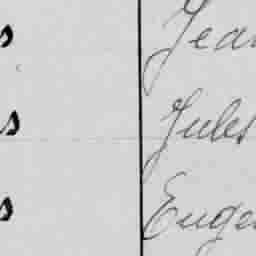 s Jean
s Jules
s Euge